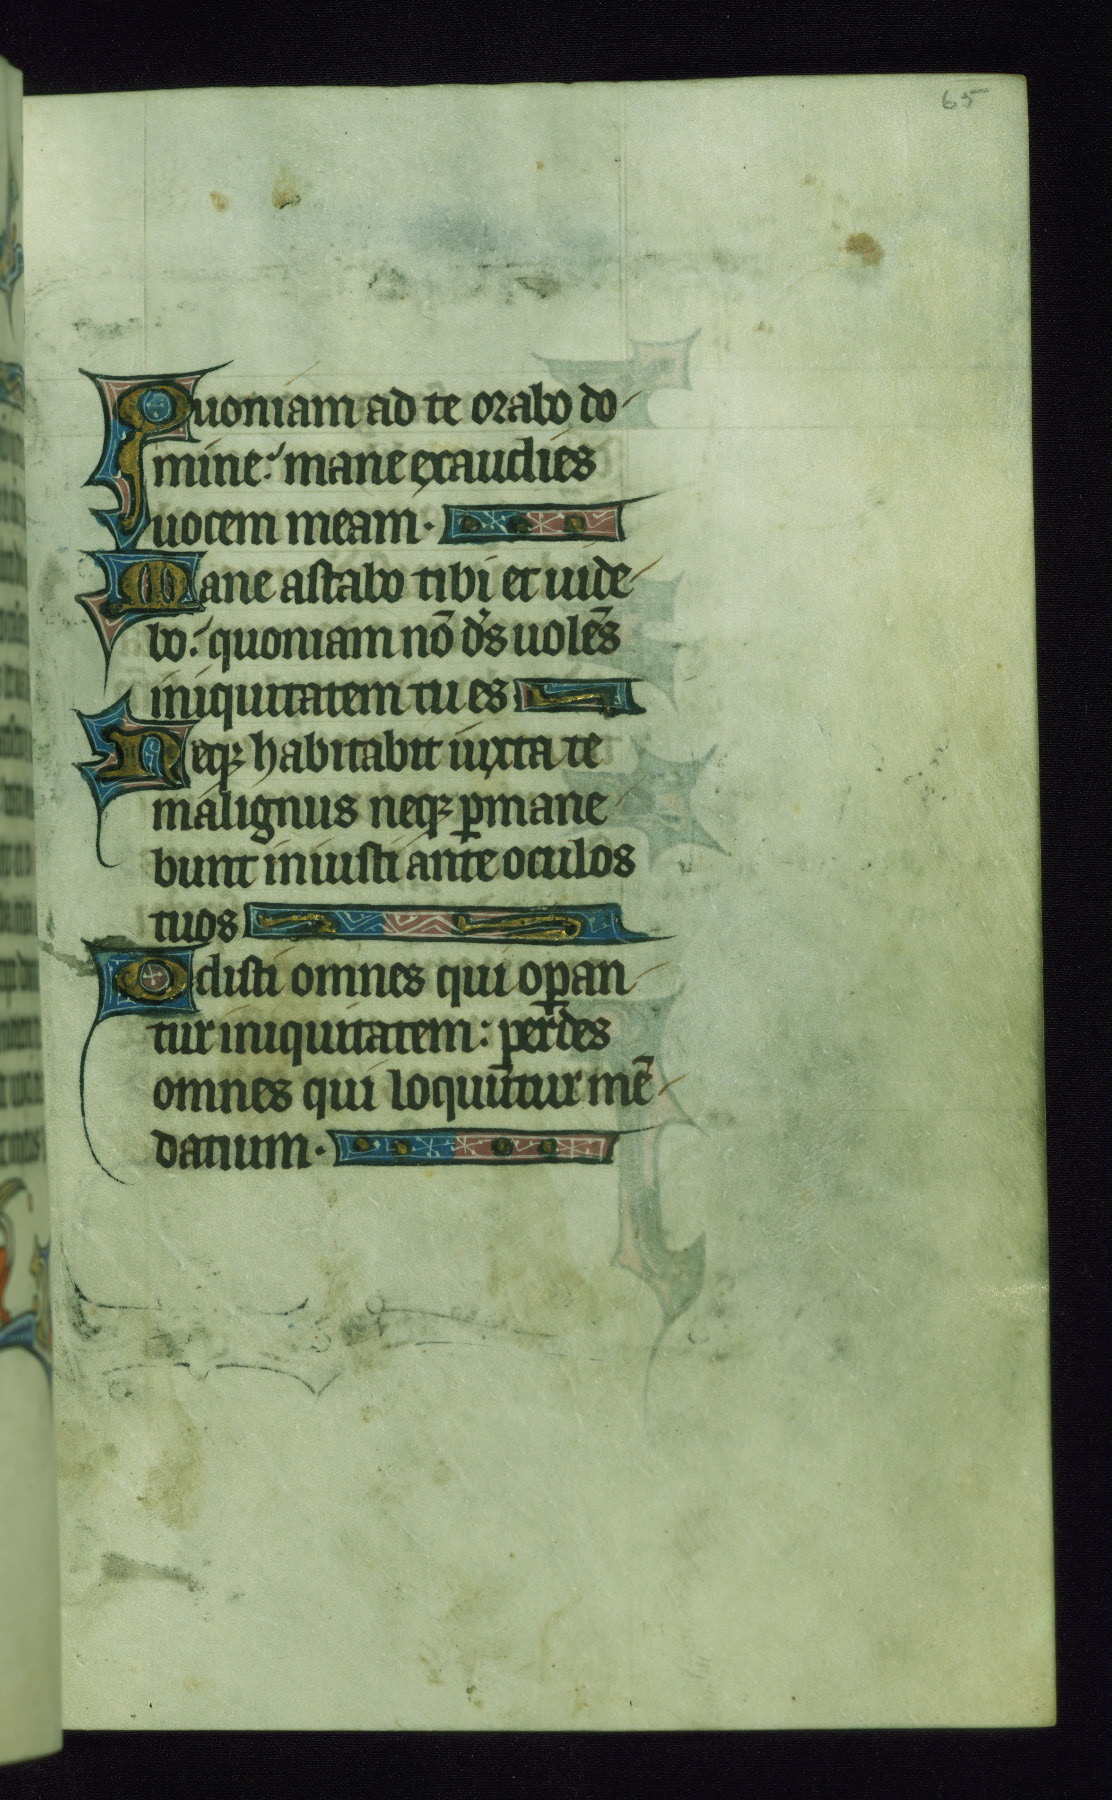 65
Quoniam ad te orabo do
mine: mane exaudies
uocem meam.
Mane astabo tibi et uide
bo: quoniam nō ds̄ uolēs
iniquitatem tu es
Neqꝫ habitabit iuxta te
malignus neqꝫ ꝑmane
bunt iniusti ante oculos
tuos
Odisti omnes qui oꝑan
tur iniquitatem: perdes
omnes qui loquūtur mē
datium.